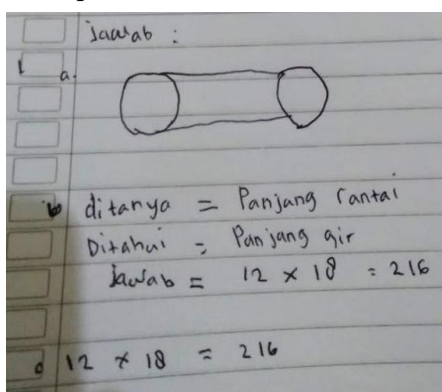 Jawab :
1 a.
b ditanya = Panjang rantai
Ditahui = Panjang gir
Jawab = 12 × 18 = 216
c 12 × 18 = 216